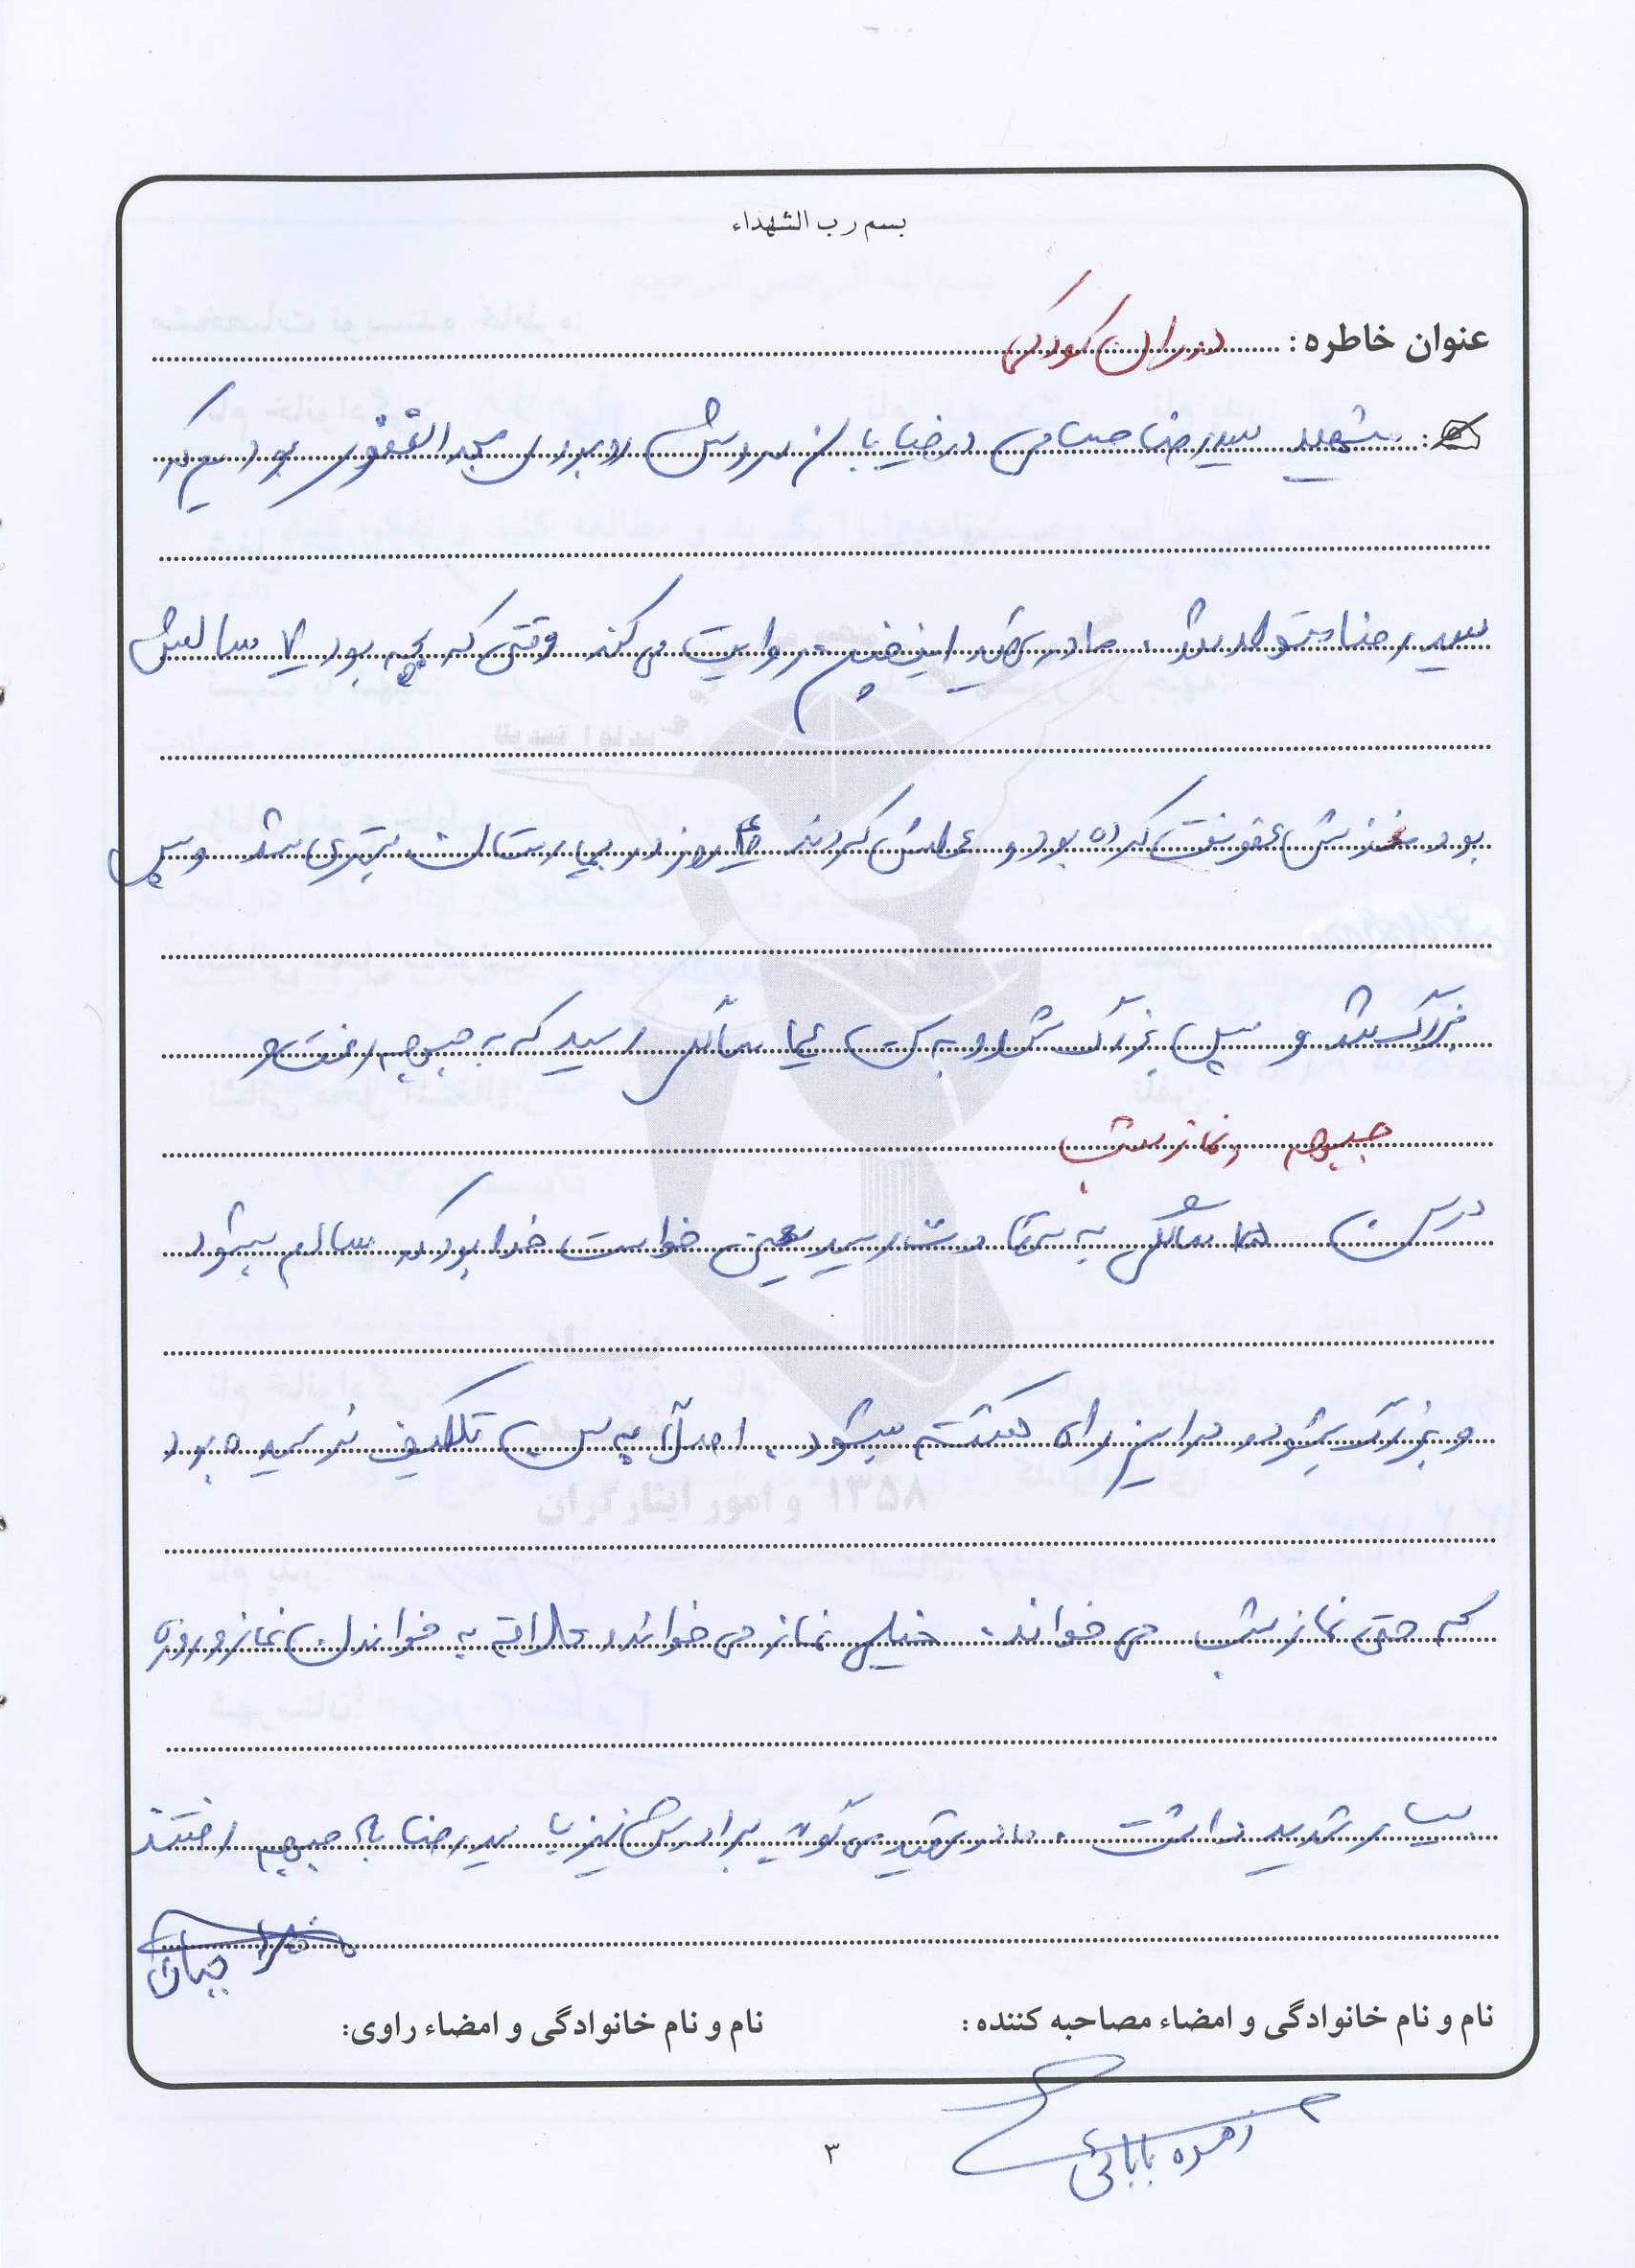 بسم رب الشهداء
عنوان خاطره: دوران کودکی
شهید سیدرضا حسامی در خیابان سروش روبروی بودیم که
سید رضا متولد شد. مادر شهید اینچنین روایت می کند وقتی که بچه بود ۷ سالش
بود مغزش عفونت کرده بود و عملش کردند روز در بیمارستان بستری شد و سپس
بزرگ شد و سپس بزرگ شد و به سن سالگی رسید که به جبهه رفت و
جبهه و نماز شب
در سن ۱۵ سالگی به شهادت رسید یعنی خواست خدا بود که سالم بشود
و بزرگ بشود و در این راه کشته میشود. اصلاً به سن تکلیف نرسیده بود
که حتی نماز شب می خواند. خیلی نماز می خواند و علاقه به خواندن نماز و روزه
بسیار شدید داشت. مادر شهید می گوید برادرش نیز با سیدرضا به جبهه رفتند
نام و نام خانوادگی و امضاء مصاحبه کننده: نام و نام خانوادگی و امضاء راوی:
زهره بابائی
۳